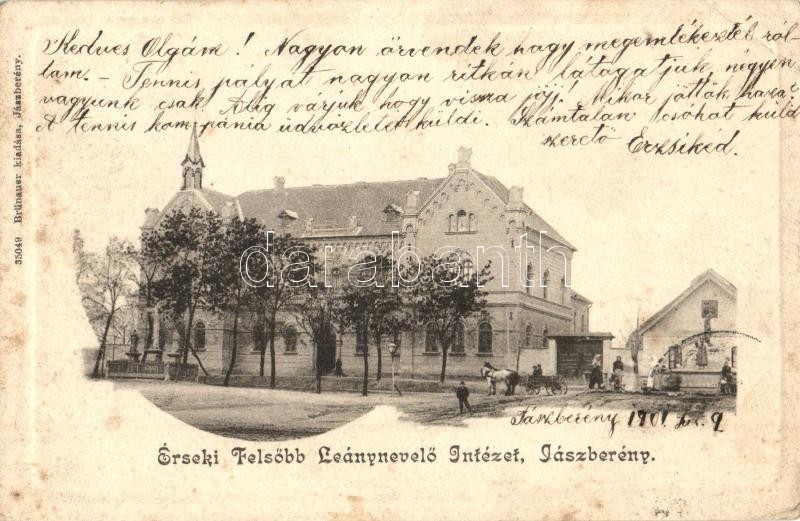 Kedves Olgám! Nagyon örvendek hogy megemlékeztél ról-
lam. - Tennis pályát nagyon ritkán látogatjuk nigyen
vagyunk csak. Alig várjuk hogy vissza jöjj! Mikor jöttök haza?
A tennis kompánia üdvözletét küldi. Számtalan csókot küld
szerető Erzsikéd.
35049 Brünauer kiadása, Jászberény.
darabanth
Jászberény 1901 9
Érseki Felsőbb Leánynevelő Intézet, Jászberény.